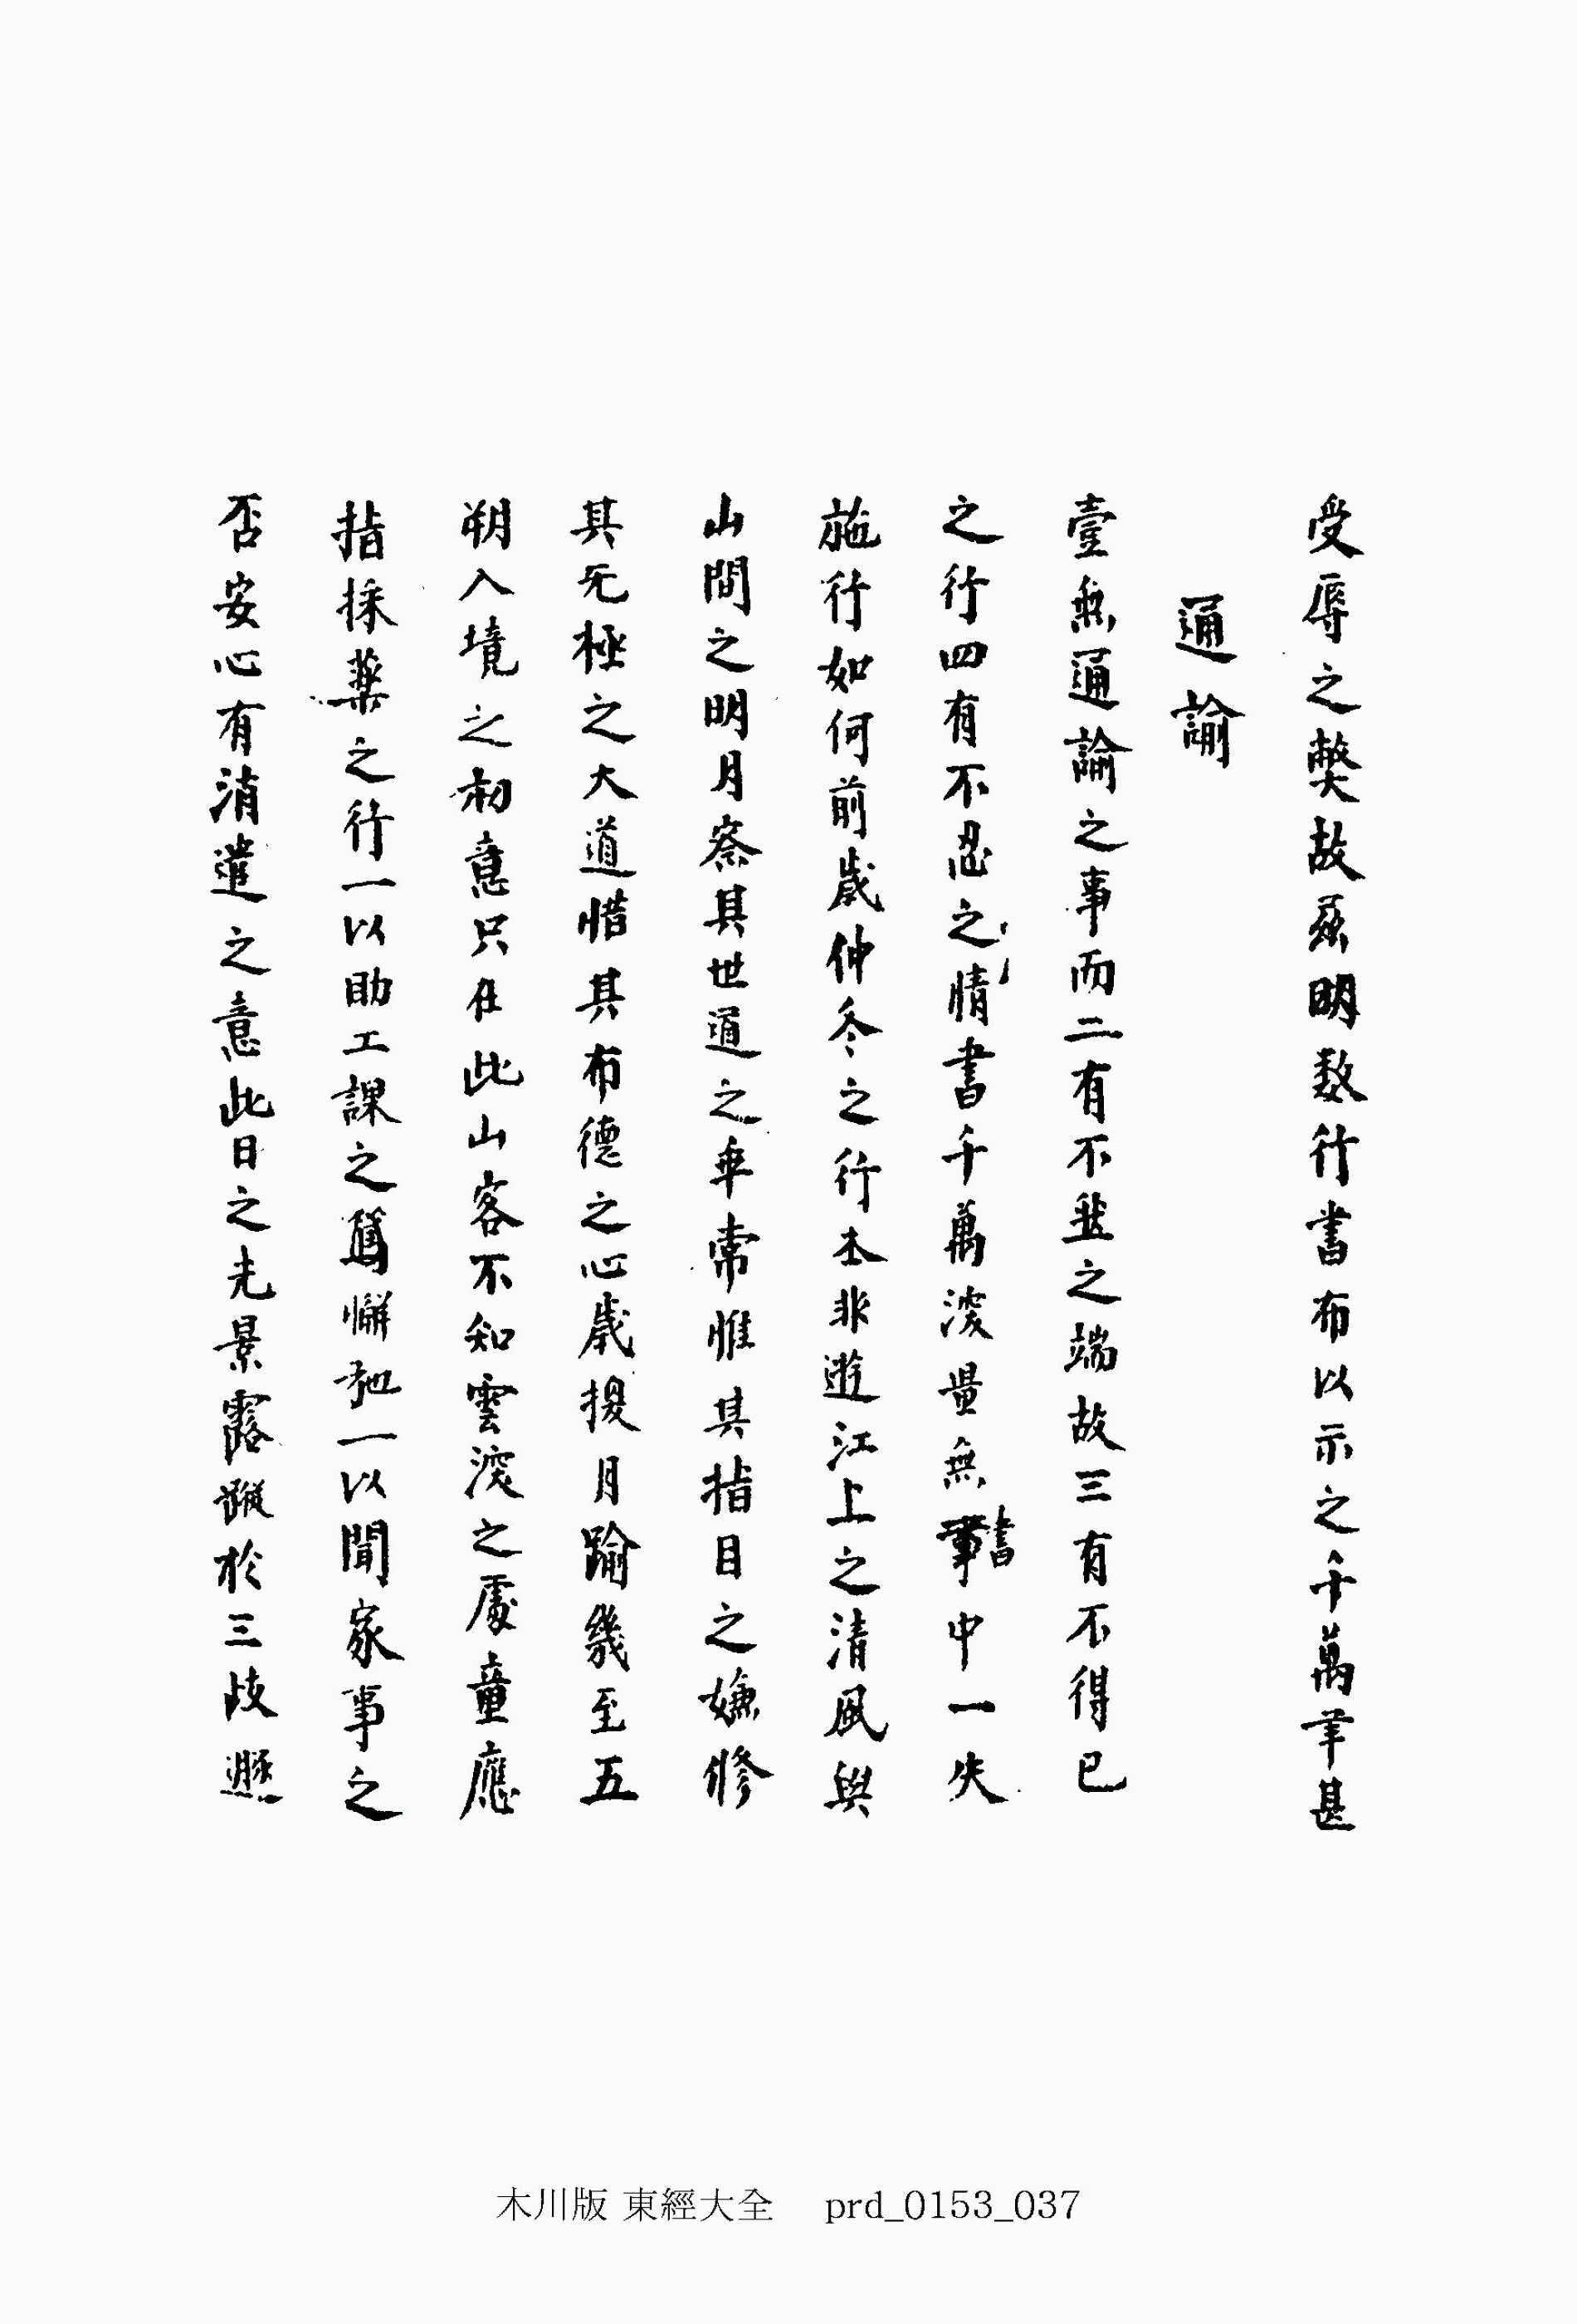 受辱之弊故玆明數行書布以示之千萬幸甚
通諭
壹無通諭之事而二有不然之端故三有不得已
之行四有不忍之情書千萬深量無書中一失
施行如何前歲仲冬之行本非遊江上之淸風與
山間之明月察其世道之乖常惟其指目之嫌修
其无極之大道惜其布德之心歲換月踰幾至五
朔入境之初意只在此山客不知雲深之處童應
指採藥之行一以助工課之懈弛一以聞家事之
否安心有消遣之意此日之光景露蹤於三歧遯
木川版 東經大全 prd_0153_037